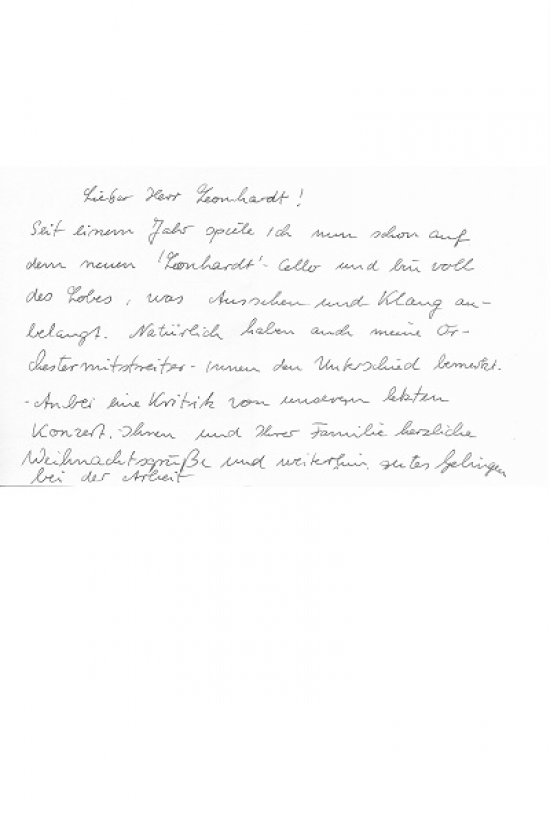 Lieber Herr Leonhardt!
Seit einem Jahr spiele ich nun schon auf
dem neuen 'Leonhardt'-Cello und bin voll
des Lobes, was Aussehen und Klang an-
belangt. Natürlich haben auch meine Or-
chestermitstreiter-innen den Unterschied bemerkt.
- Anbei eine Kritik von unserem letzten
Konzert. Ihnen und Ihrer Familie herzliche
Weihnachtsgrüße und weiterhin gutes Gelingen
bei der Arbeit